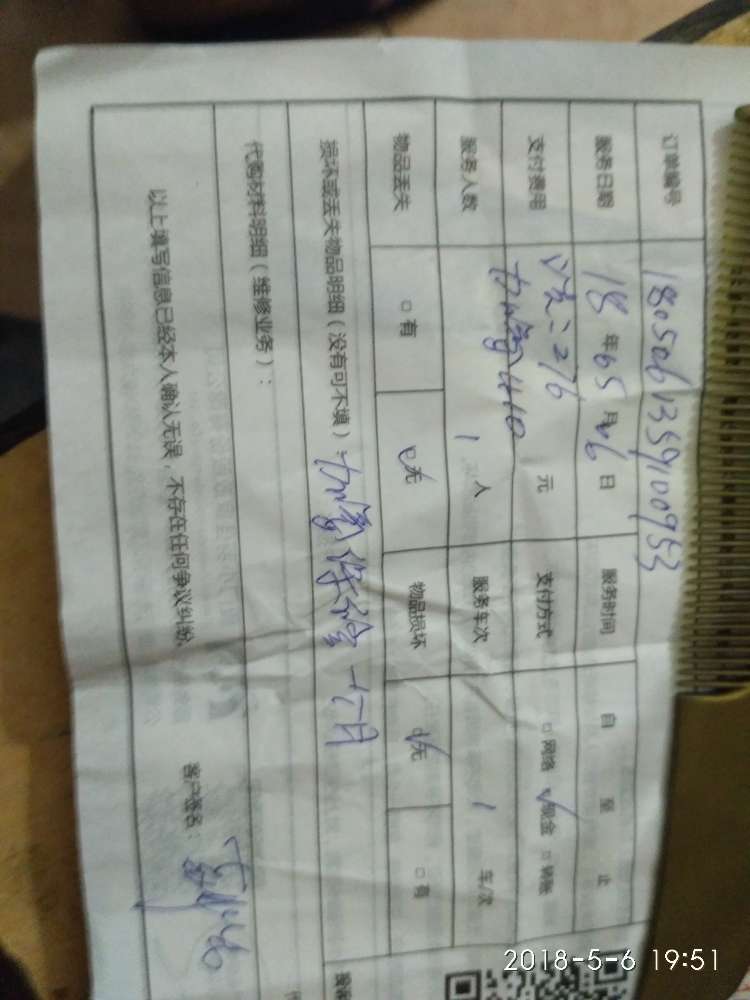 订单编号 1805061359100953
服务日期 18 年 05 月 06 日 服务时间 自 至 止
支付费用 276 元 支付方式 □网络 ☑现金 □转账
加氟 410
服务人数 1 人 服务车次 1 车/次
物品丢失 □有 ☑无 物品损坏 ☑无 □有
损坏或丢失物品明细（没有可不填）：加氟保 一个月
代购材料明细（维修业务）：
以上填写信息已经本人确认无误，不存在任何争议纠纷。
客户签名：
2018-5-6 19:51